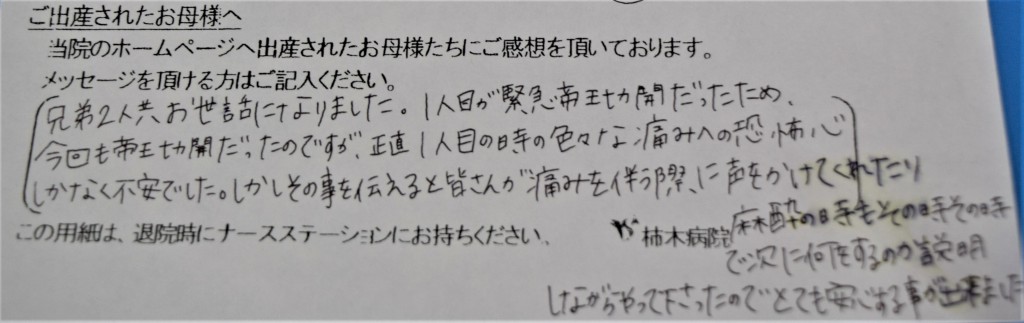 ご出産されたお母様へ
当院のホームページへ出産されたお母様たちにご感想を頂いております。
メッセージを頂ける方はご記入ください。
兄弟2人共お世話になりました。1人目が緊急帝王切開だったため、
今回も帝王切開だったのですが、正直1人目の時の色々な痛みへの恐怖心
しかなく不安でした。しかしその事を伝えると皆さんが痛みを伴う際に声をかけてくれたり
麻酔の時もその時その時
で次に何をするのか説明
しながらやって下さったのでとても安心する事が出来ました
この用紙は、退院時にナースステーションにお持ちください。
柿木病院